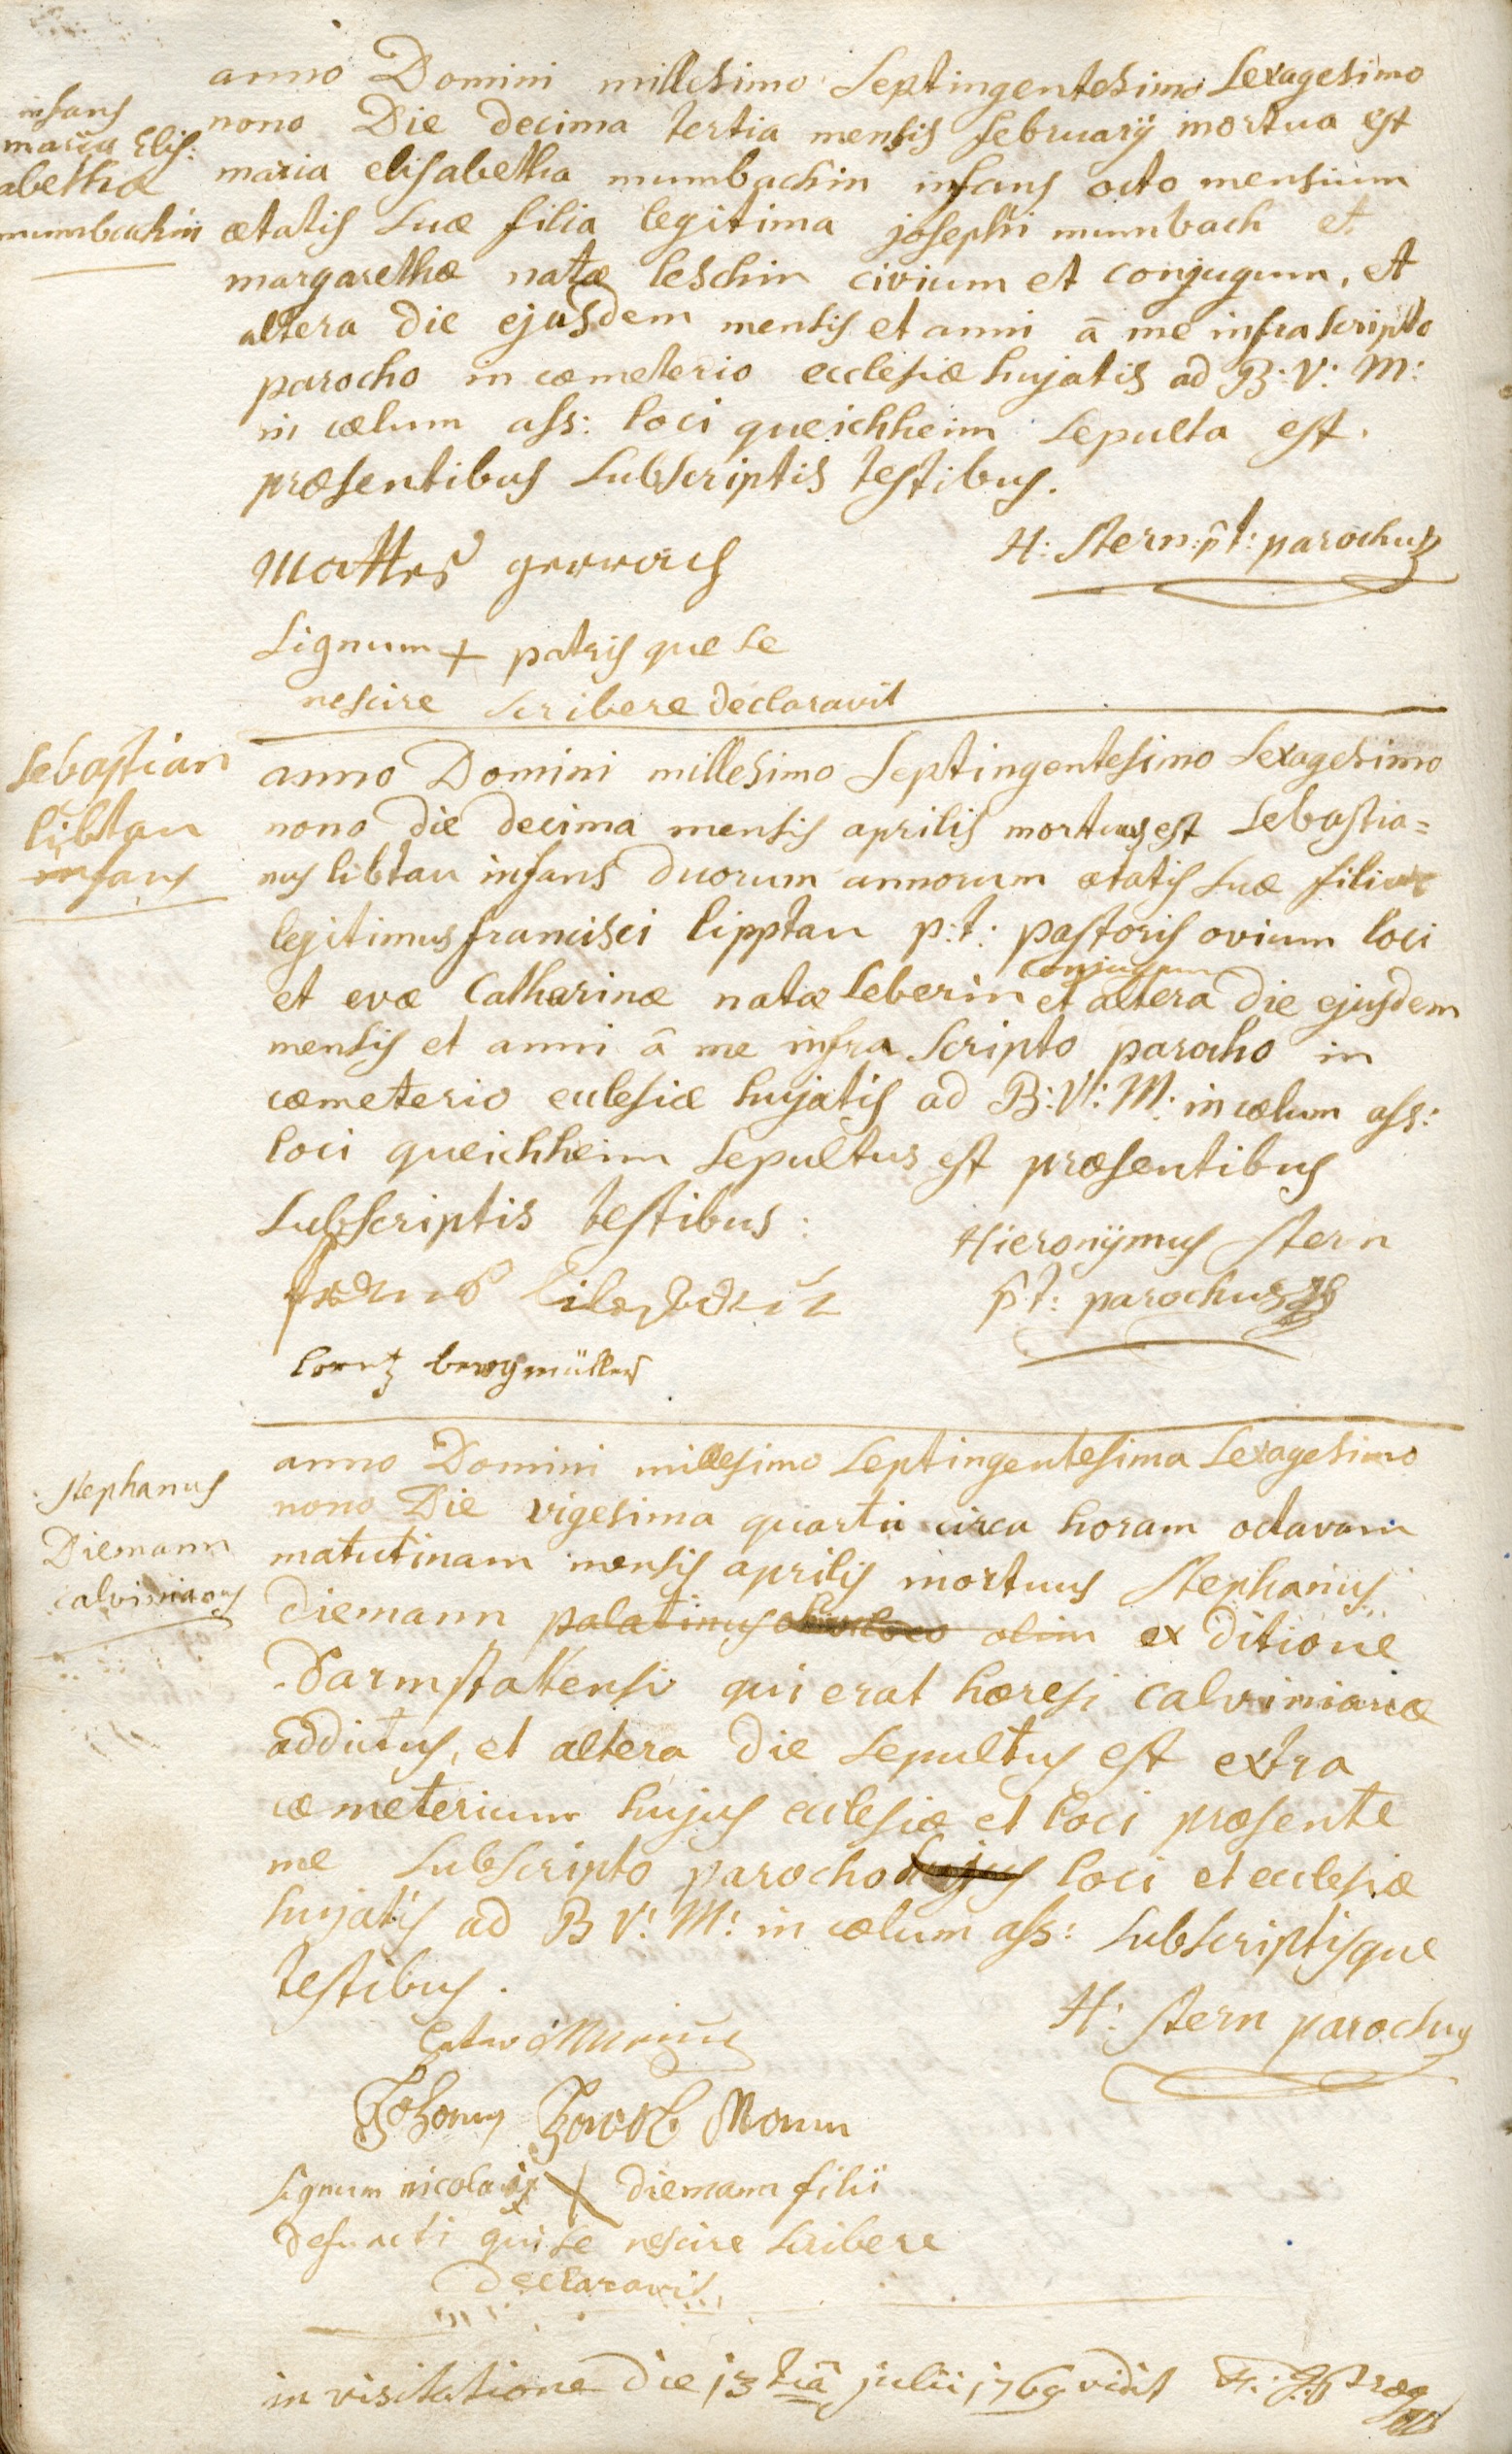 anno Domini millesimo Septingentesimo Sexagesimo
infans
maria Elis:
abetha
mumbachin
nono Die decima tertia mensis februarÿ mortua est
maria elisabetha mumbachin infans octo mensium
ætatis suæ filia legitima josephi mumbach et
margarethæ natæ leschin civium et conjugum, et
altera die ejusdem mensis et anni â me infra scripto
parocho in cæmeterio ecclesiæ hujatis ad B: V: M:
in cælum ass: loci queichheim sepulta est.
præsentibus subscriptis testibus.
H: Stern: pt: parochus
Mattes
Signum + patris que se
nescire scribere declaravit
Sebastian
libtau
infans
anno Domini millesimo Septingentesimo Sexagesimo
nono die decima mensis aprilis mortuus est Sebastia=
nus libtau infans duorum annorum ætatis suæ filius
legitimus francisci lipptau p:t: pastoris ovium loci
conjugum
et evæ Catharinæ natæ seberin et altera die ejusdem
mensis et anni â me infra scripto parocho in
cæmeterio ecclesiæ hujatis ad B: V: M: in cælum ass:
loci queichheim sepultus est præsentibus
subscriptis testibus:
Hieronÿmus Stern
pt: parochus
lorentz bergmüller
Stephanus
Diemann
calvinianus
anno Domini millesimo Septingentesima Sexagesimo
nono Die vigesima quarta circa horam octavam
matutinam mensis aprilis mortuus Stephanus
Diemann palatinus olim ex ditione
Darmstattensi qui erat hæresi calvinianæ
addictus, et altera die sepultus est extra
cæmeterium hujus ecclesiæ et loci præsente
me subscripto parocho hujus loci et ecclesiæ
hujatis ad B V: M: in cælum ass: subscriptisque
testibus.
H: Stern parochus
Johannes Jacob Mann
signum nicolai X diemann filii
defuncti qui se nescire scribere
declaravit
in visitatione die 13tiâ julii 1769 vidit